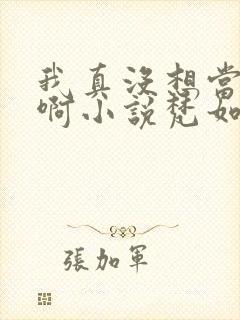 我真沒想當
啊小說梵如
張加軍